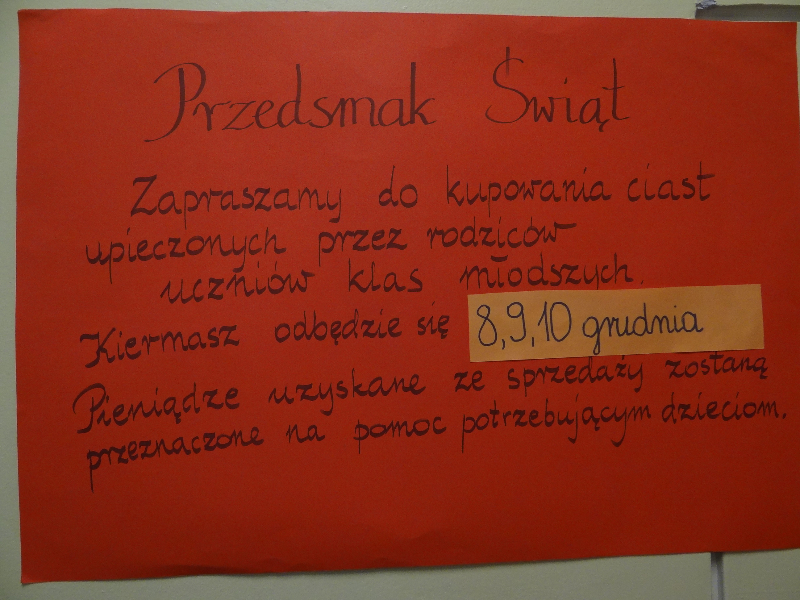 Przedsmak Świąt
Zapraszamy do kupowania ciast
upieczonych przez rodziców
uczniów klas młodszych.
Kiermasz odbędzie się 8,9,10 grudnia
Pieniądze uzyskane ze sprzedaży zostaną
przeznaczone na pomoc potrzebującym dzieciom.